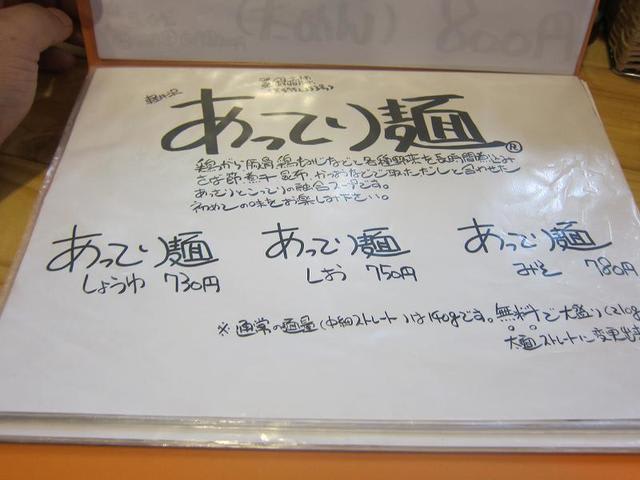 軽井沢
あってり麺®
鶏がら 豚骨 鶏もみじなどと各種野菜を長時間煮込み
さば節 煮干 昆布 かつおなどで取っただしと合わせた
あっさりとこってりの融合スープです。
初めての味をお楽しみ下さい。
あってり麺 あってり麺 あってり麺
しょうゆ 730円 しお 750円 みそ 780円
※通常の麺量(中細ストレート)は140gです。無料で大盛り(210g
太麺ストレートに変更出